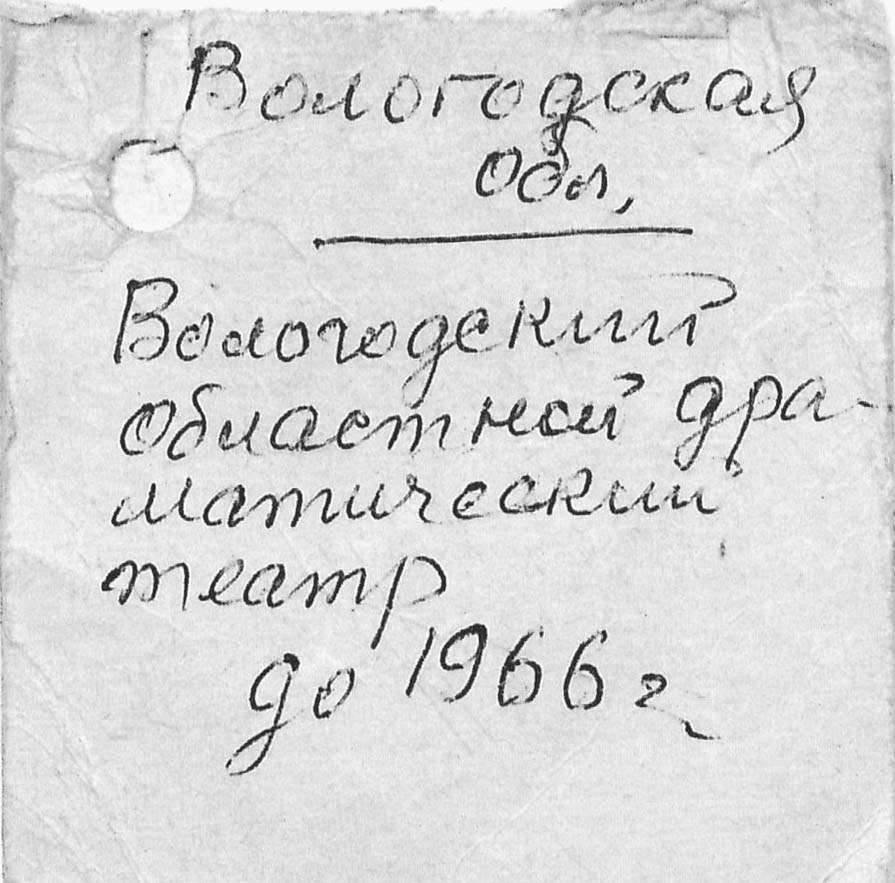 Вологодская
обл,
Вологодский
областной дра-
матический
театр
до 1966 г,